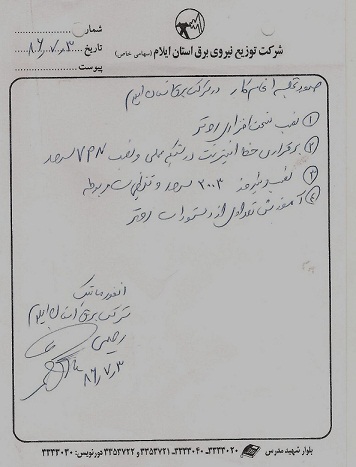 شماره
تاریخ ۸۶/۷/۳۰
پیوست
شرکت توزیع نیروی برق استان ایلام (سهامی خاص)
صورتجلسه انجام کار در شرکت برق استان ایلام
۱ نصب سخت افزاری روتر
۲ برقراری خط اینترنت در شبکه محلی و نصب VPN سرور
۳ نصب ویندوز ۲۰۰۳ سرور و تنظیمات مربوطه
۴ آموزش تعدادی از دستورات روتر
انفورماتیک
شرکت برق استان ایلام
رحیمی
۸۶/۷/۳۰
بلوار شهید مدرس ۳۳۳۳۰۲۰-۳۳۳۳۰۴۰-۳۳۵۳۷۲۱ و ۳۳۵۳۷۲۲ دورنویس: ۳۳۳۳۰۳۰